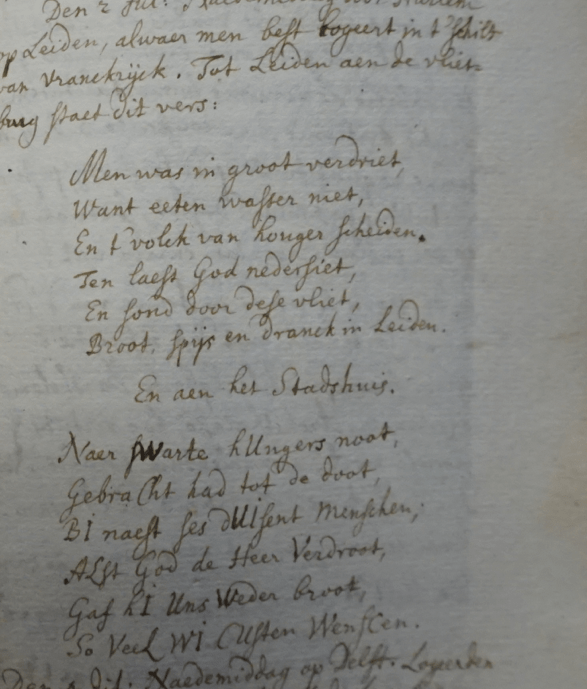 Den 2 Jul: Naedemiddag door Haerlem
op Leiden, alwaer men best logeert in t' schilt
van vranckrijck. Tot Leiden aen de vliet-
burg staet dit vers:
Men was in groot verdriet,
Want eeten wasser niet,
En t' volck van honger scheiden.
Ten laest God nedersiet,
En sond door dese vliet,
Broot, spijs en dranck in Leiden.
En aen het Stadshuis.
Naer sWarte hUngers noot,
Gebracht had tot de doot,
BI naest ses dUIsent Menschen;
ALst God de Heer Verdroot,
Gaf hI Uns Weder broot,
So VeeL WI CUsten WensCen.
Den 2 dit: Naedemiddag op Delft. Logeerden